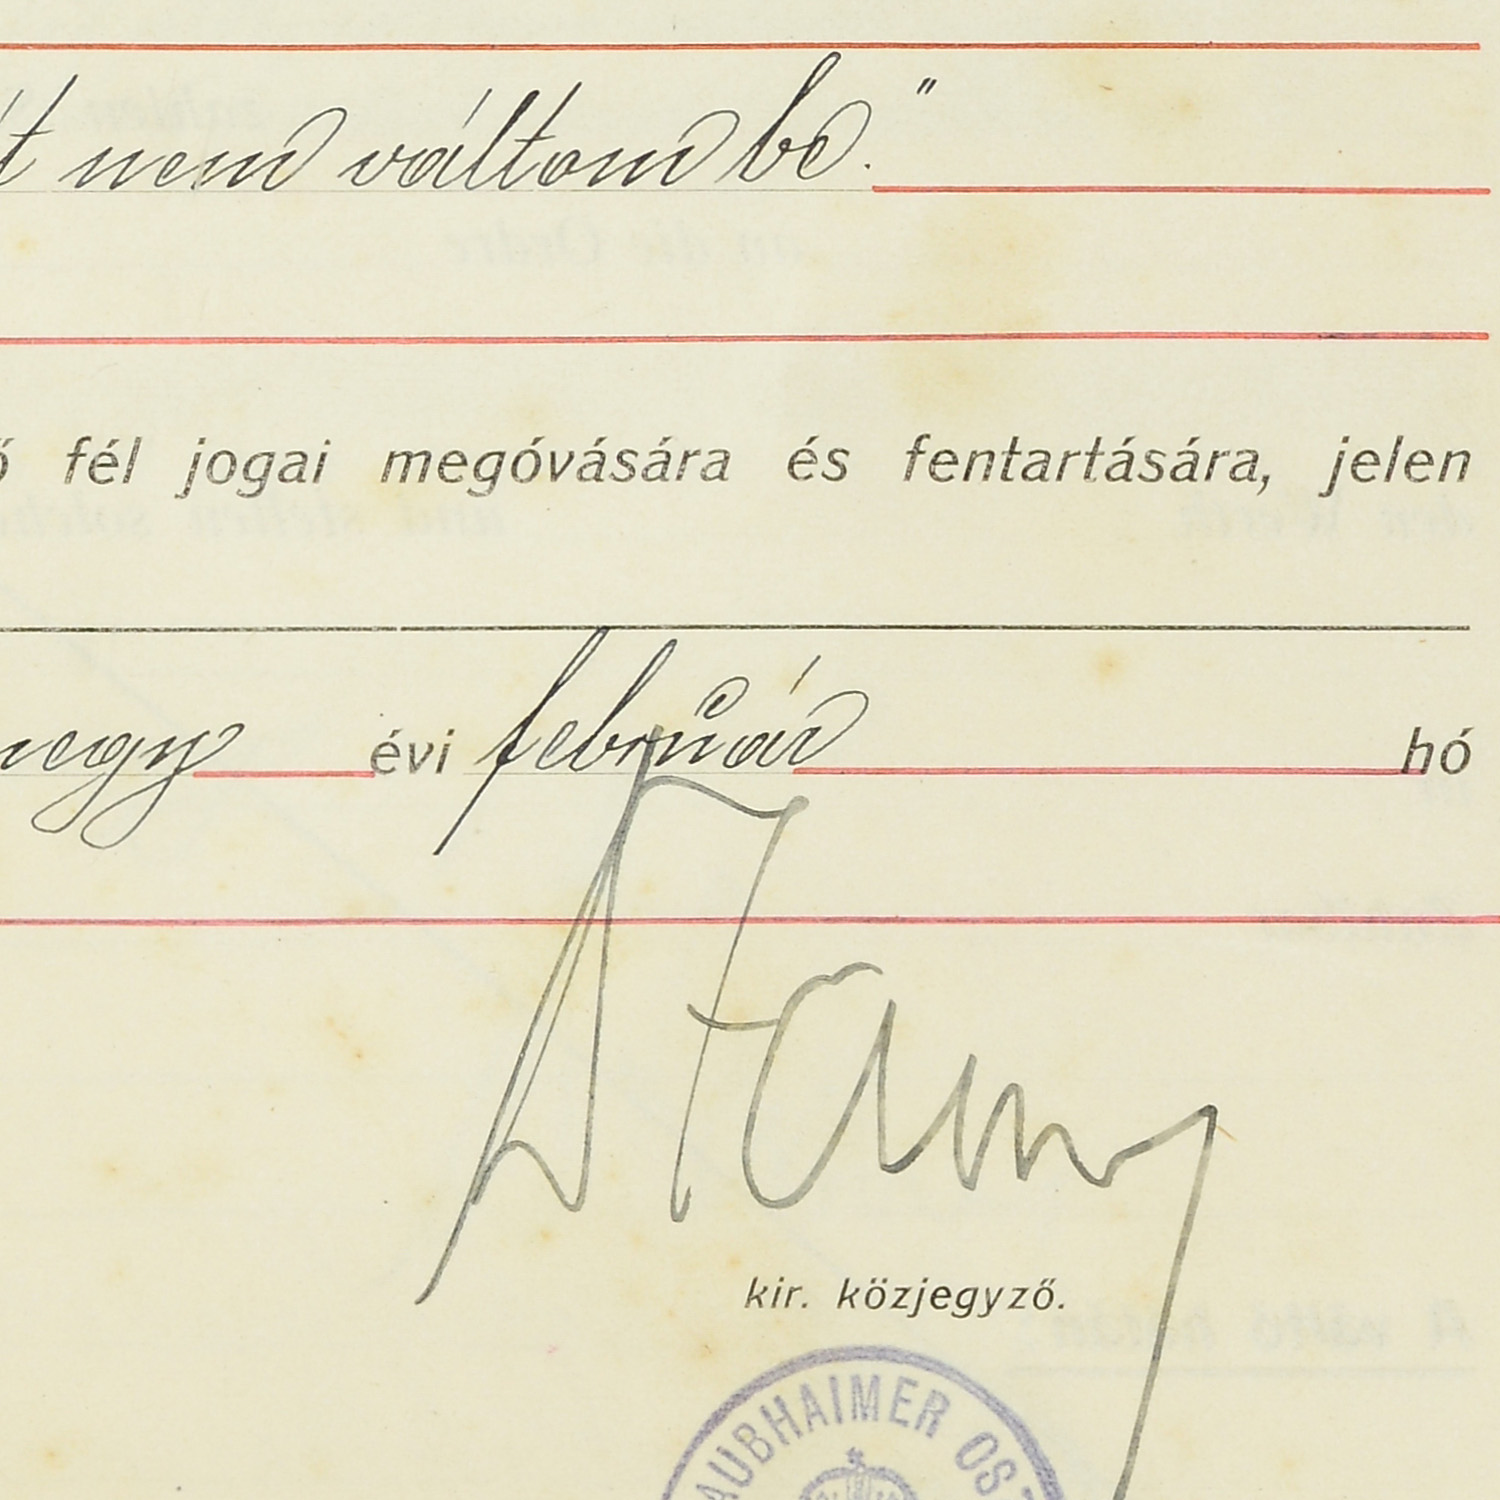 nem váltom be."
fél jogai megóvására és fentartására, jelen
negy évi február hó
kir. közjegyző.
AUBHAIMER